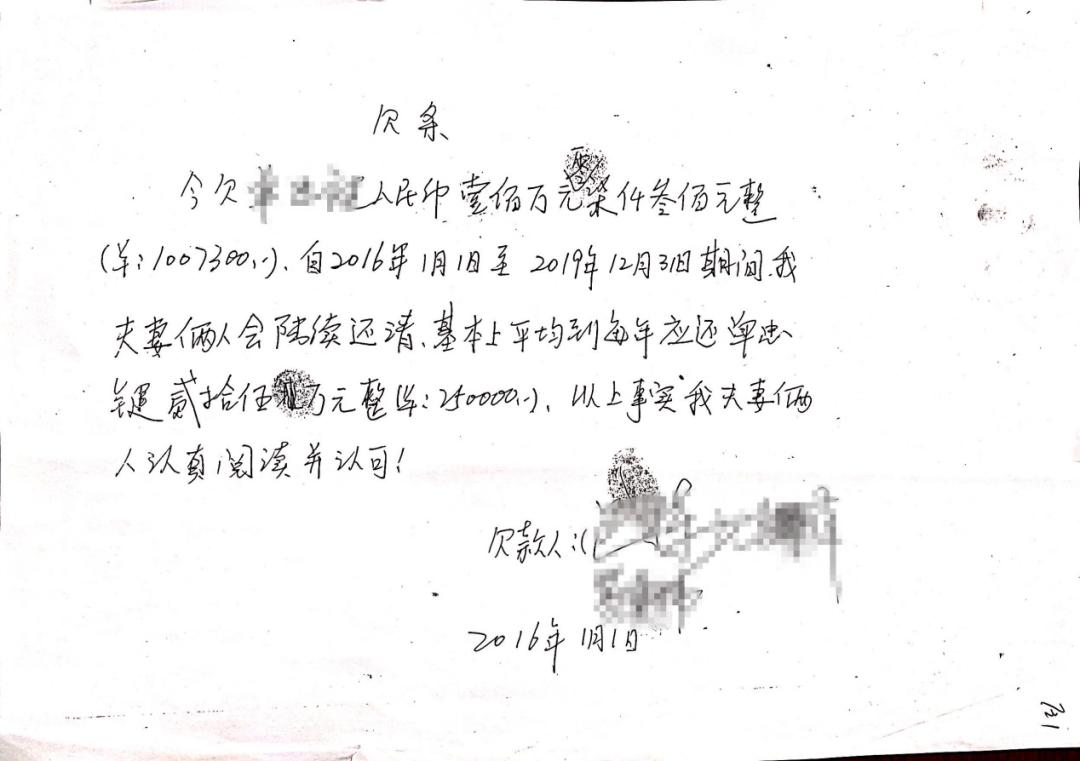 欠条
今欠 人民币壹佰万元零柒仟叁佰元整
(¥:1007300.-)、自2016年1月1日至2019年12月31日期间、我
夫妻俩人会陆续还清、基本上平均到每年应还单忠
键贰拾伍万元整(¥:250000.-)、以上事实我夫妻俩
人认真阅读并认可!
欠款人:
2016年1月1日